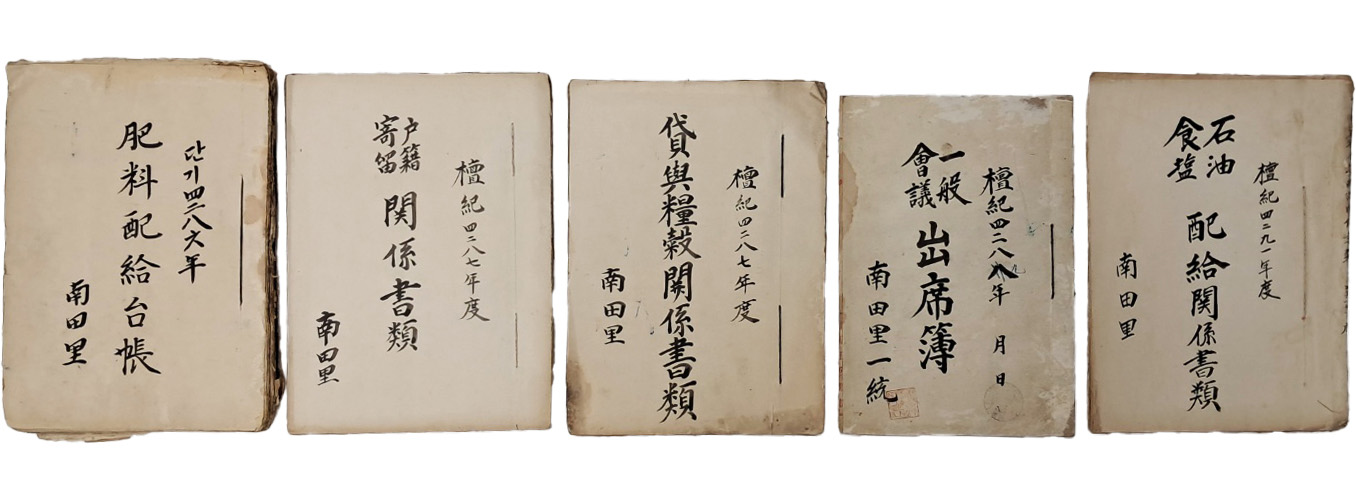 단기四二八六年
肥料配給台帳
南田里
檀紀四二八七年度
戶籍
寄留
関係書類
南田里
檀紀四二八七年度
貸與糧穀関係書類
南田里
檀紀四二八九年 月 日
一般
會議
出席簿
南田里一統
檀紀四二九一年度
石油
食塩
配給関係書類
南田里